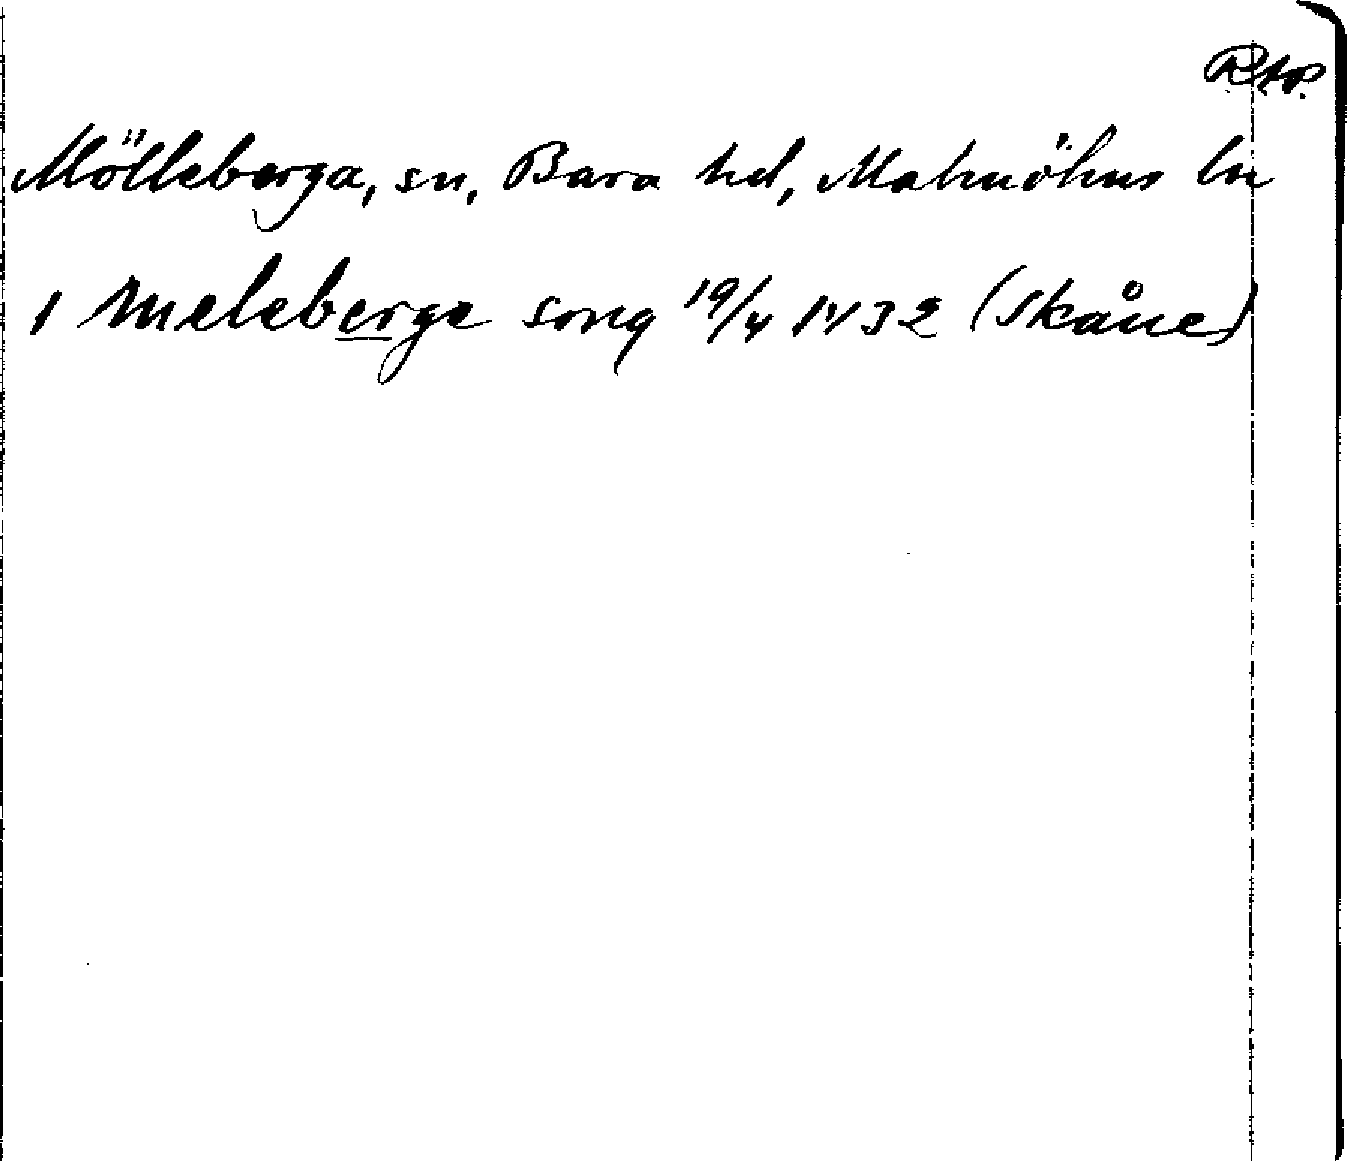 R.t.p.
Mölleberga, sn, Bara hd, Malmöhus ln
i meleberge song 19/4 1432 (Skåne)